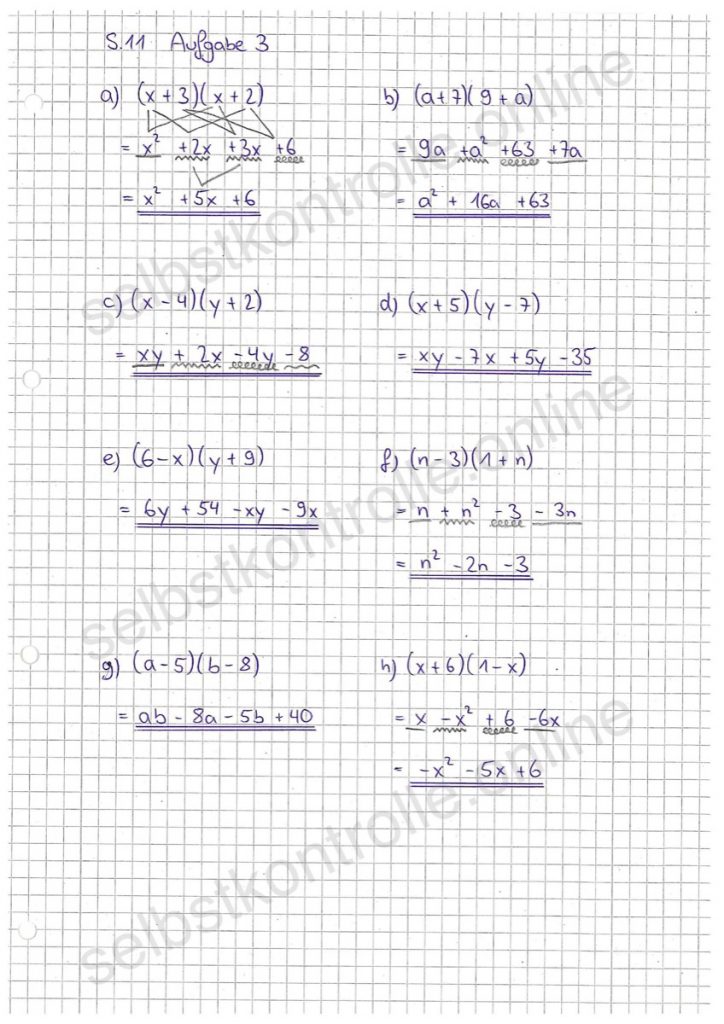 S.11 Aufgabe 3
a) (x + 3)(x + 2)
= x² + 2x + 3x + 6
= x² + 5x + 6
b) (a + 7)(9 + a)
= 9a + a² + 63 + 7a
= a² + 16a + 63
c) (x - 4)(y + 2)
= xy + 2x - 4y - 8
d) (x + 5)(y - 7)
= xy - 7x + 5y - 35
e) (6 - x)(y + 9)
= 6y + 54 - xy - 9x
f) (n - 3)(1 + n)
= n + n² - 3 - 3n
= n² - 2n - 3
g) (a - 5)(b - 8)
= ab - 8a - 5b + 40
h) (x + 6)(1 - x)
= x - x² + 6 - 6x
= -x² - 5x + 6
selbstkontrolle.online
selbstkontrolle.online
selbstkontrolle.online